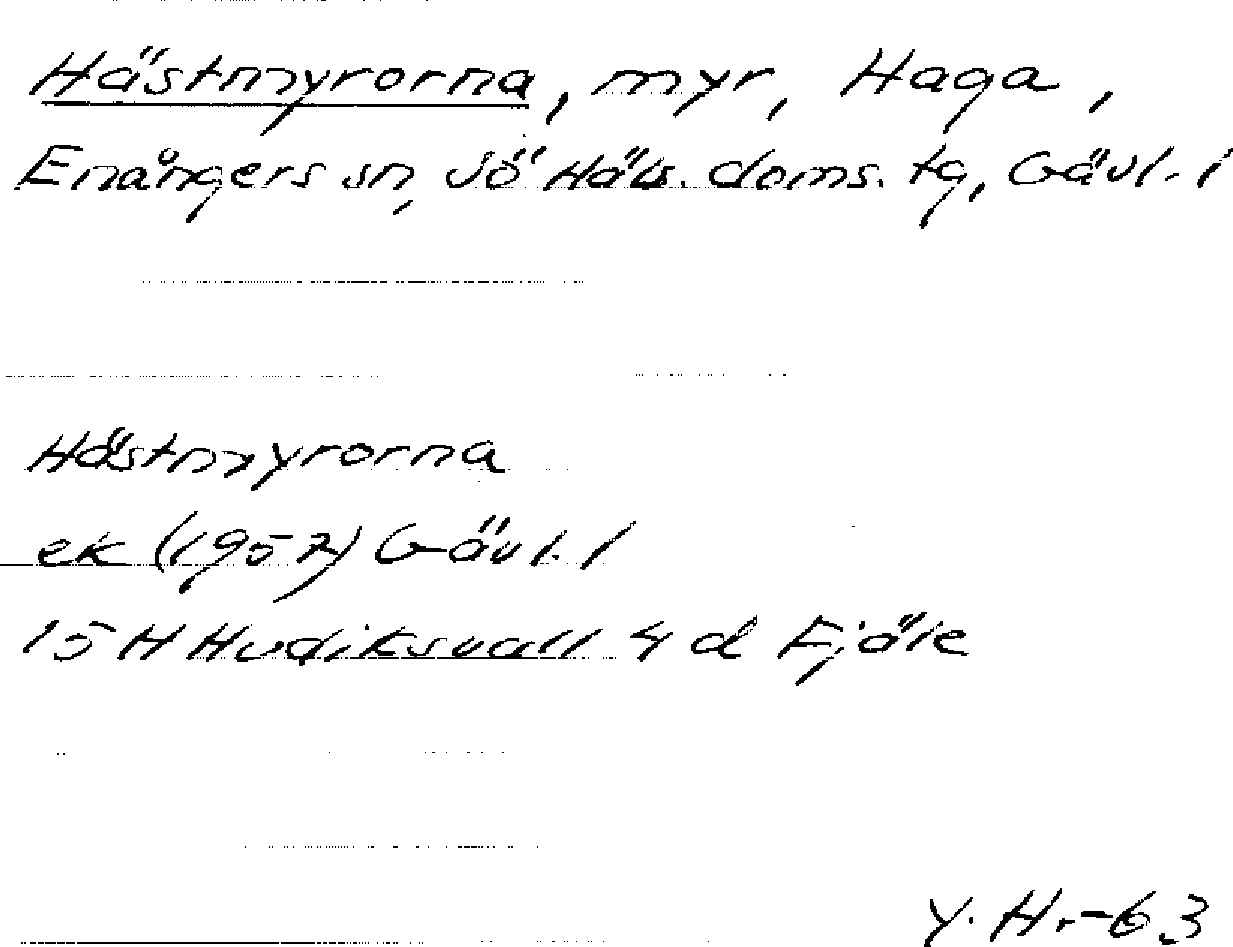 Hästmyrorna, myr, Haga,
Enångers sn, Sö Häls. doms. tg, Gävl. l
Hästmyrorna
ek (1957) Gävl. l
15 H Hudiksvall 4 d Fjäle
Y. Hr.-63